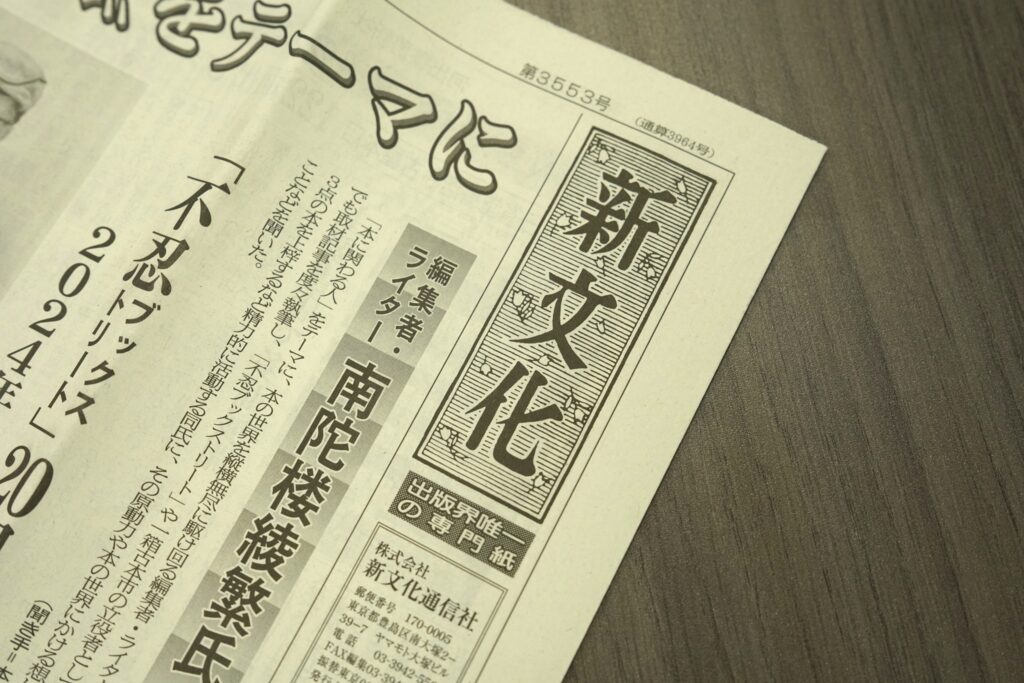 第3553号
(通算3964号)
新文化
出版界唯一
の専門紙
株式会社
新文化通信社
郵便番号 170-0005
東京都豊島区南大塚2-
39-7 ヤマモト大塚ビル
電話 03-3942-55
FAX編集03-394
振替東京00
発行
をテーマに
編集者・
ライター
南陀楼綾繁氏
「本に関わる人」をテーマに、本の世界を縦横無尽に駆け回る編集者・ライタ
でも取材記事を度々執筆し、「不忍ブックストリート」や一箱古本市の立役者とし
3点の本を上梓するなど精力的に活動する同氏に、その原動力や本の世界にかける想
ことなどを聞いた。
(聞き手=本
「不忍ブックス
トリート」
2024年
20